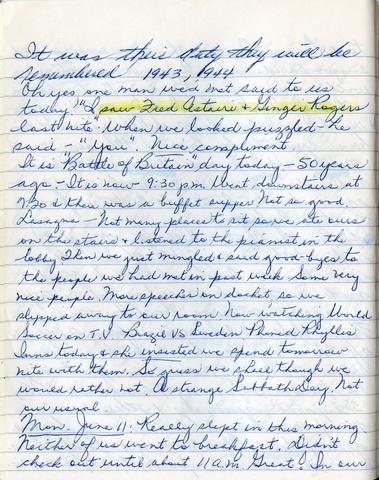 It was their duty they will be
remembered 1943, 1944
Oh yes one man we'd met said to us
today "I saw Fred Astaire & Ginger Rogers
last nite" When we looked puzzled - he
said - "You". Nice compliment.
It is "Battle of Britain" day today - 50 years
ago - It is now 9:30 p.m. Went downstairs at
7:30 & there was a buffet supper Not so good
Lasagna - Not many places to sit so we ate ours
on the stairs & listened to the pianist in the
lobby Then we just mingled & said good-byes to
the people we had met in past week Some very
nice people. More speeches on docket so we
slipped away to our room Now watching World
Soccer on T.V. Brazil VS Sweden Phoned Phyllis
Inns today & she insisted we spend tomorrow
nite with them. So guess we shall though we
would rather not. A strange Sabbath Day. Not
our usual.
Mon. June 11: Really slept in this morning.
Neither of us went to breakfast. Didn't
check out until about 11 a.m. Great! In our